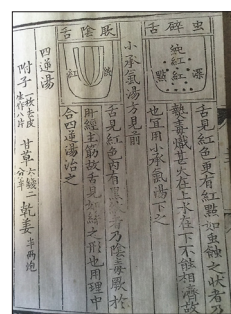 虫碎舌
純紅
紅
點
深
舌見紅色更有紅點如虫蝕之狀者乃
熱毒熾甚火在上水在下不能相濟故
也宜用小承氣湯下之
小承氣湯方見前
厥陰舌
紅
舌見紅色內有黑紋者乃陰毒厥於
肝經主筋故舌見如絲之形也用理中
合四逆湯治之
四逆湯
附子一枚去皮生作八片 甘草六錢二分半 乾姜半兩炮